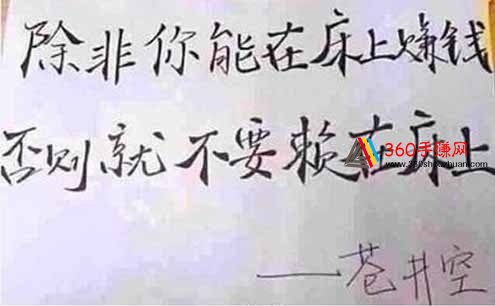 除非你能在床上赚钱
否则就不要赖在床上
360手赚网
——苍井空